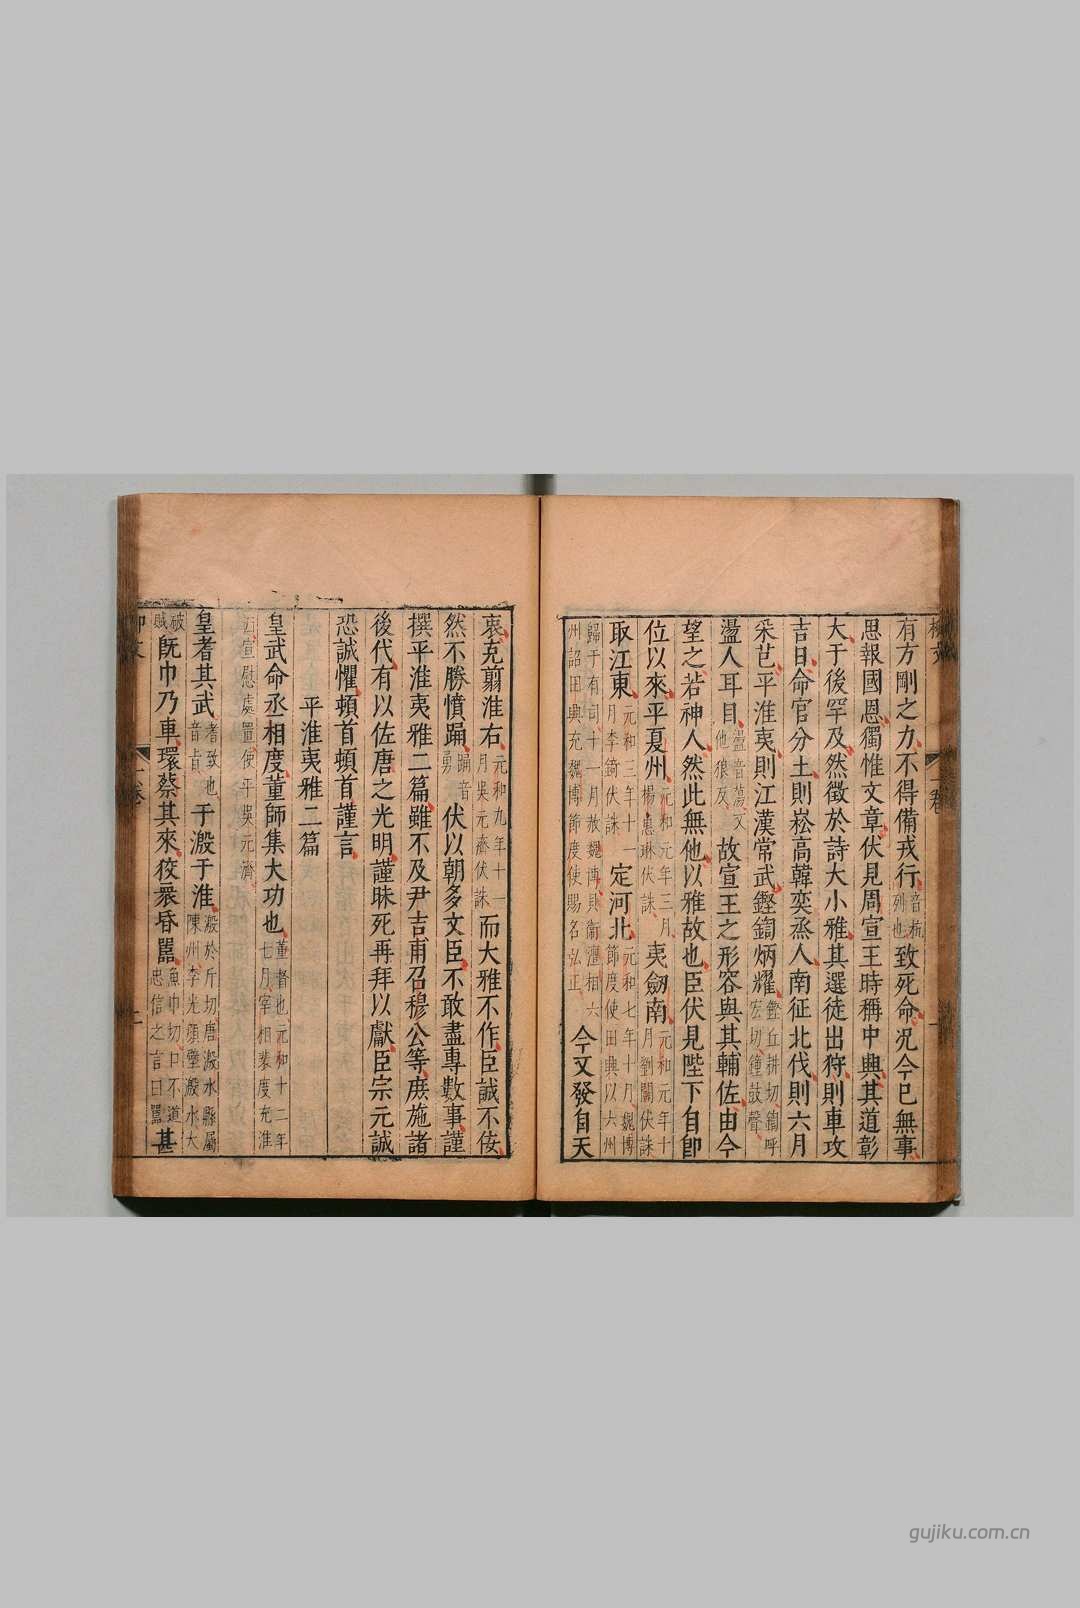 有方剛之力不得備戎行音杭列也致死命況今已無事
思報國恩獨惟文章伏見周宣王時稱中興其道彰
大于後罕及然徵於詩大小雅其選徒出狩則車攻
吉日命官分土則崧高韓奕烝人南征北伐則六月
采芑平淮夷則江漢常武鏗鍧炳耀鏗丘耕切鍧呼宏切鐘鼓聲
盪人耳目盪音蕩又他狼反故宣王之形容與其輔佐由今
望之若神人然此無他以雅故也臣伏見陛下自即
位以來平夏州元和元年三月楊惠琳伏誅夷劒南元和元年十月劉闢伏誅
取江東元和三年十一月李錡伏誅定河北元和七年十月魏博節度使田興以六州
歸于有司十一月赦魏博貝衛澶相六州詔田興充魏博節度使賜名弘正今又發自天
衷克翦淮右元和九年十一月吳元濟伏誅而大雅不作臣誠不佞
然不勝憤踊踊音勇伏以朝多文臣不敢盡專數事謹
撰平淮夷雅二篇雖不及尹吉甫召穆公等庶施諸
後代有以佐唐之光明謹昧死再拜以獻臣宗元誠
恐誠懼頓首頓首謹言
平淮夷雅二篇
皇武命丞相度董師集大功也董者也元和十二年七月宰相裴度充淮
西宣慰處置使平吳元濟
皇耆其武耆致也音旨于溵于淮溵於斤切唐溵水縣屬陳州李光顔壁溵水大
破賊既巾乃車環蔡其來狡衆昏嚚魚巾切口不道忠信之言曰嚚甚
gujiku.com.cn